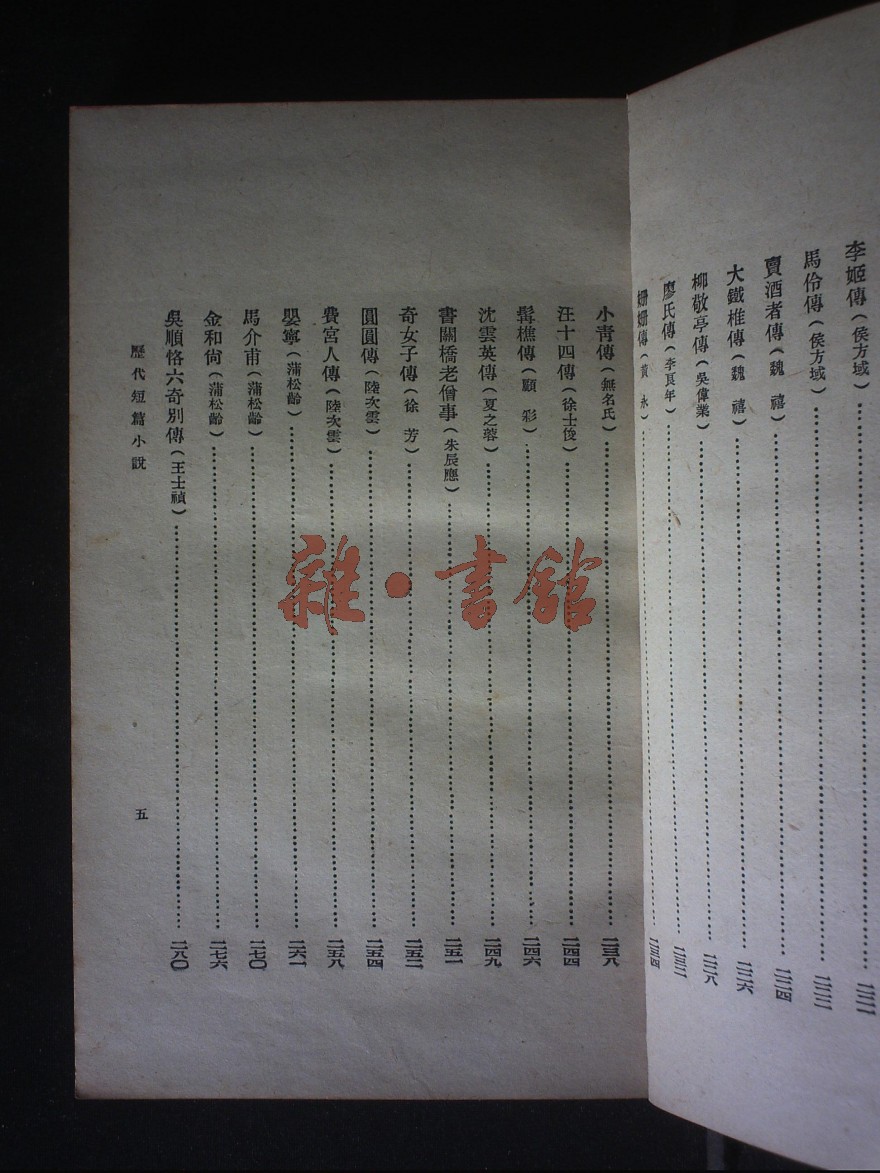 李姬傳(侯方域)……二二一
馬伶傳(侯方域)……二二二
賣酒者傳(魏 禧)……二二四
大鐵椎傳(魏 禧)……二二六
柳敬亭傳(吳偉業)……二二八
廖氏傳(李良年)……二三二
姍姍傳(黃 永)……二三四
小青傳(無名氏)……二三八
汪十四傳(徐士俊)……二四四
髯樵傳(顧 彩)……二四六
沈雲英傳(夏之蓉)……二四九
書關橋老僧事(朱辰應)……二五一
奇女子傳(徐 芳)……二五二
圓圓傳(陸次雲)……二五四
費宮人傳(陸次雲)……二五八
嬰寧(蒲松齡)……二六一
馬介甫(蒲松齡)……二七〇
金和尙(蒲松齡)……二七六
吳順恪六奇別傳(王士禎)……二八〇
歷代短篇小說 五
雜·書館